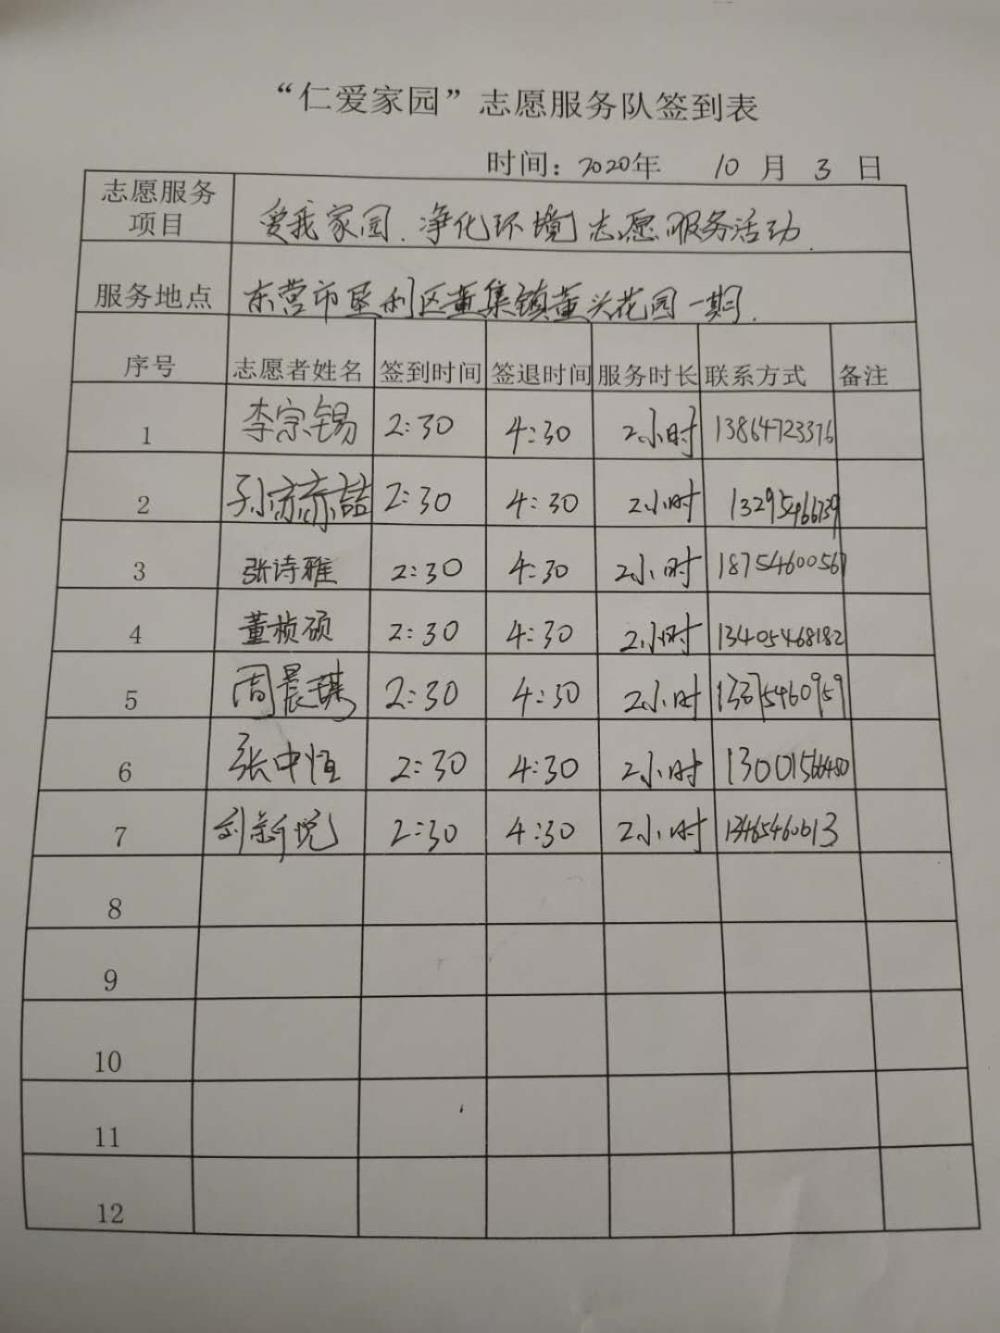 “仁爱家园”志愿服务队签到表
时间：2020年 10月 3日
志愿服务项目 爱我家园.净化环境志愿服务活动.
服务地点 东营市垦利区董集镇董头花园一期.
序号 志愿者姓名 签到时间 签退时间 服务时长 联系方式 备注
1 李宗锡 2:30 4:30 2小时 13864723376
2 2:30 4:30 2小时 13295466739
3 张诗雅 2:30 4:30 2小时 18754600567
4 董桢硕 2:30 4:30 2小时 13405468182
5 周晨琪 2:30 4:30 2小时
6 张中恒 2:30 4:30 2小时 13001566480
7 刘新悦 2:30 4:30 2小时 13465460613
8
9
10
11
12